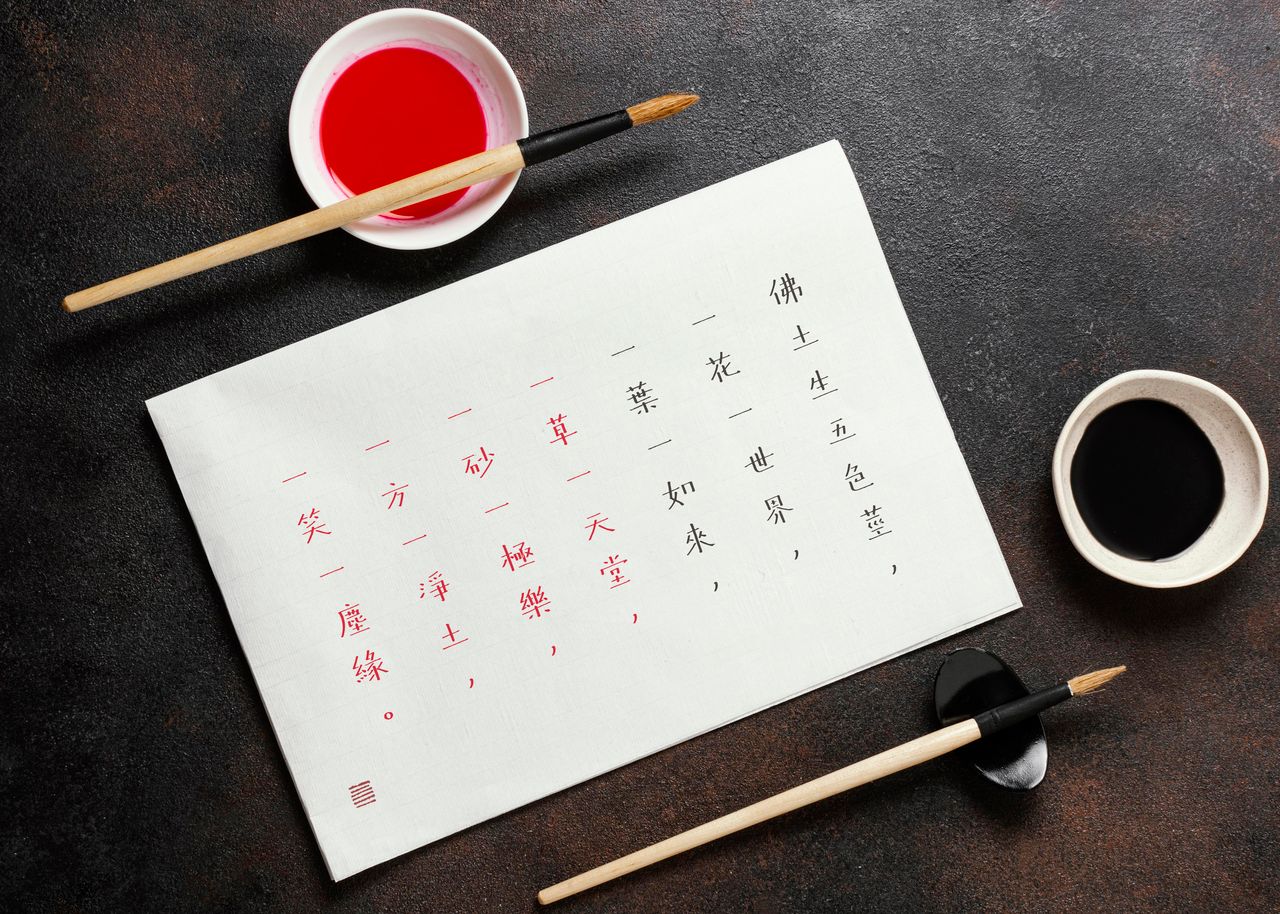 佛土生五色莖，
一花一世界，
一葉一如來，
一草一天堂，
一砂一極樂，
一方一淨土，
一笑一塵緣。